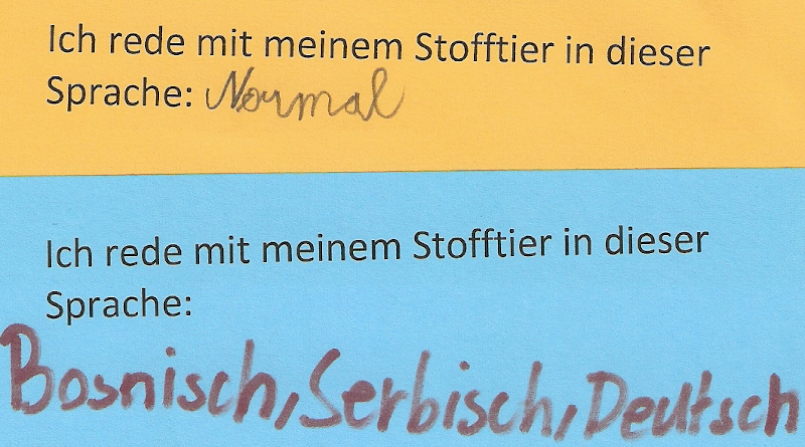 Ich rede mit meinem Stofftier in dieser
Sprache: Normal
Ich rede mit meinem Stofftier in dieser
Sprache:
Bosnisch, Serbisch, Deutsch